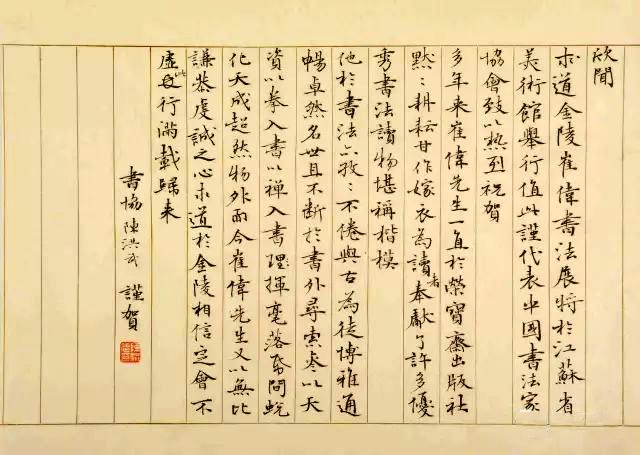 欣聞
求道金陵崔偉書法展將於江蘇省
美術館舉行值此謹代表中國書法家
協會致以热烈祝賀
多年来崔偉先生一直於榮寶齋出版社
默：耕耘甘作嫁衣為讀者奉獻了許多優
秀書法讀物堪稱楷模
他於書法亦孜：不倦與古為徒博雅通
暢卓然名世且不斷於書外尋索参以天
資以拳入書以禅入書理揮毫落帋間蜕
化天成超然物外而今崔偉先生又以無比
謙恭虔誠之心求道於金陵相信定會不
虛此行滿載歸来
書協陳洪武 謹賀